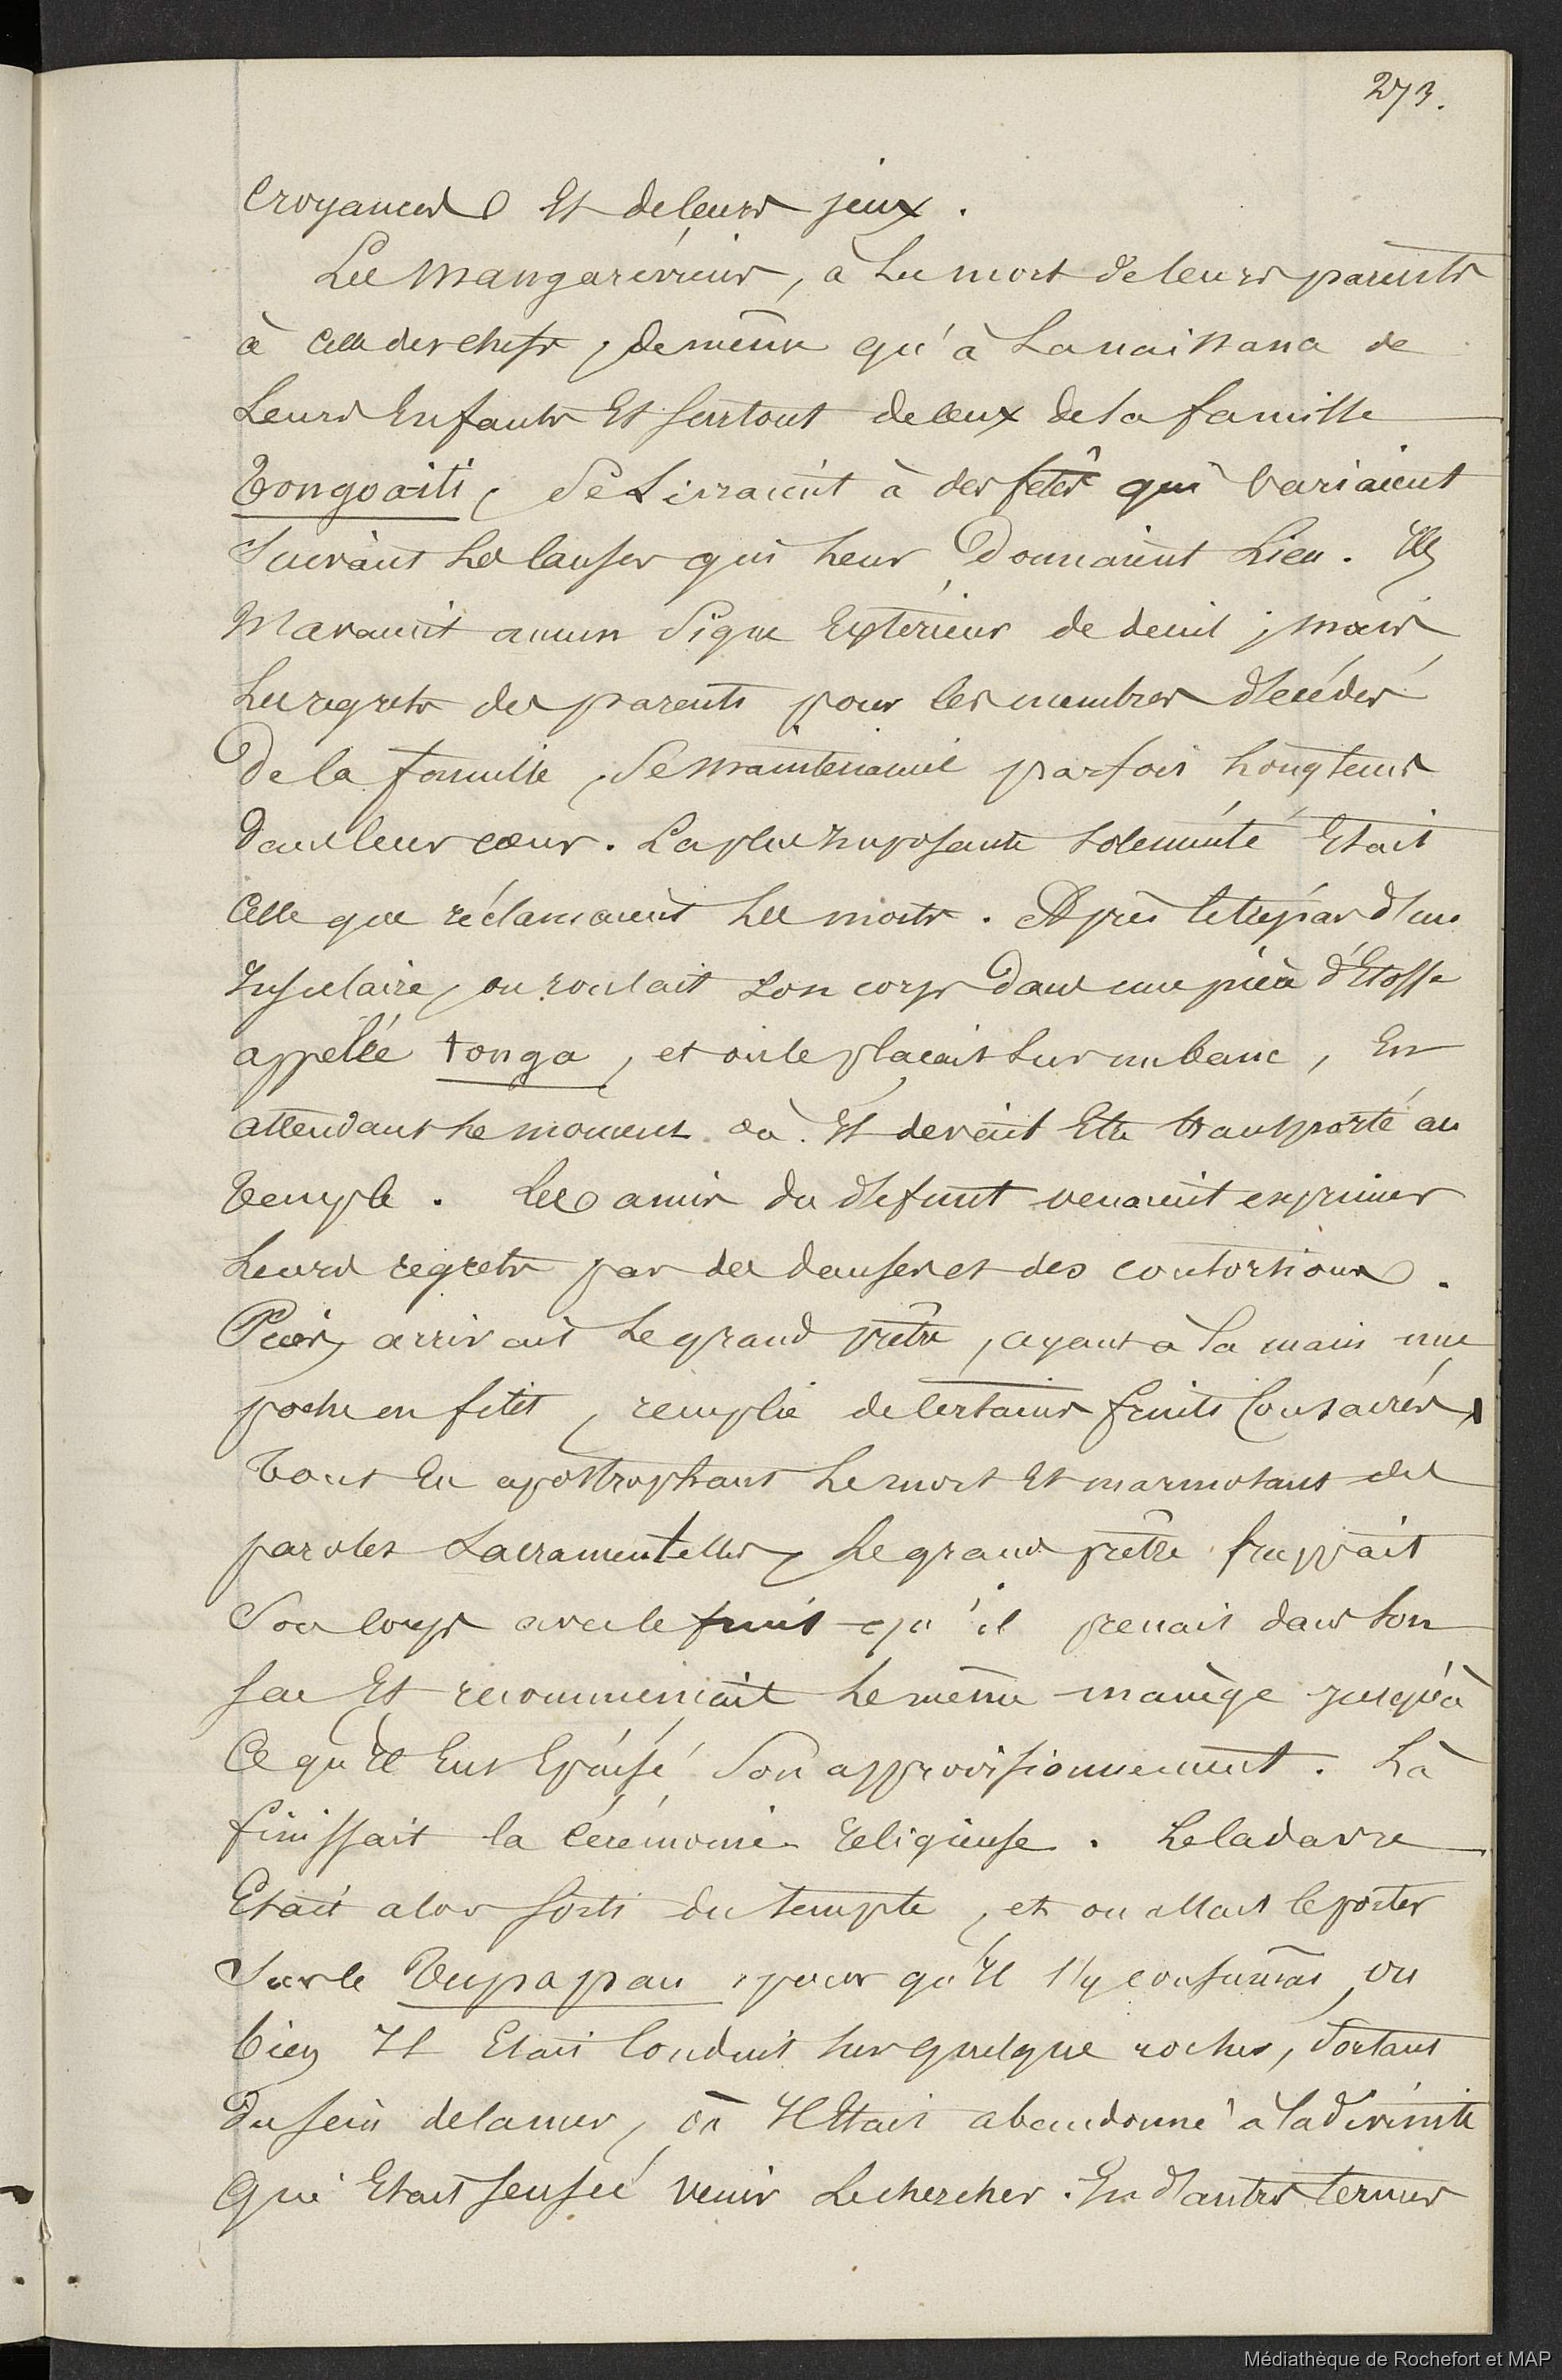 273.
Croyances et de leurs jeux.
Les Mangaréviens, à la mort de leurs parents
à celle des chefs, de même qu'à la naissance de
leurs Enfants Et surtout de ceux de la famille
Tongoaiti, se livraient à des fêtes qui variaient
suivant les causes qui leur Donnaient lieu. Ils
n'avaient aucun signe Extérieur de deuil ; mais
les regrets des parents pour les membres décédés
De la famille, se maintenaient parfois longtems
dans leur cœur. La plus Imposante solennité Etait
Celle que réclamaient les morts. Après le trépas d'un
Insulaire, on roulait son corps Dans une pièce d'Etoffe
appelée tonga, et on le plaçait sur un banc, En
attendant le moment où Il devait Etre transporté au
temple. Les amis du défunt venaient exprimer
leurs regrets par des danses et des contorsions.
Puis, arrivait le grand prêtre, ayant à la main une
poche en filet, remplie de Certains fruits Consacrés,
Tout En apostrophant le mort Et marmotant des
paroles sacramentelles, le grand prêtre frappait
Son Corps avec le fruit qu'il prenait dans son
sac Et recommençait le même manège jusqu'à
Ce qu'Il Eut Epuisé Son approvisionnement. Là
finissait la Cérémonie religieuse. Le Cadavre
Etait alors sorti du temple, et on allait le porter
Sur le Tupapau, pour qu'Il s'y consumât, ou
bien Il Etait Conduit sur quelque rocher, sortant
Du sein de la mer, où Il Etait abandonné à la Divinité
Qui Etait sensée venir le chercher. En d'autres termes
Médiathèque de Rochefort et MAP